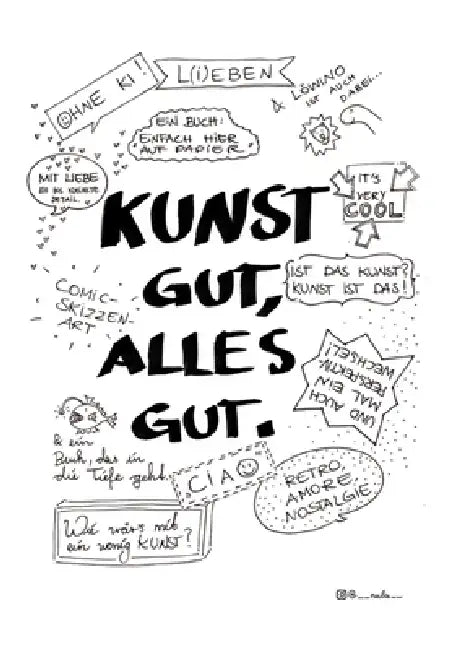 OHNE KI!
L(i)EBEN
& LÖWINO
IST AUCH
DABEI...
EIN BUCH:
EINFACH HIER
AUF PAPIER.
MIT LIEBE
DETAIL.
IT'S
VERY
COOL
KUNST
GUT,
ALLES
GUT.
IST DAS KUNST?
KUNST IST DAS!
COMIC-
SKIZZEN-
ART
UND AUCH
MAL EIN
PERSPEKTIV-
WECHSEL!
& ein
Buch, das in
die Tiefe geht.
CIAO
RETRO,
AMORE,
NOSTALGIE
Wie wär's mit
ein wenig KUNST?